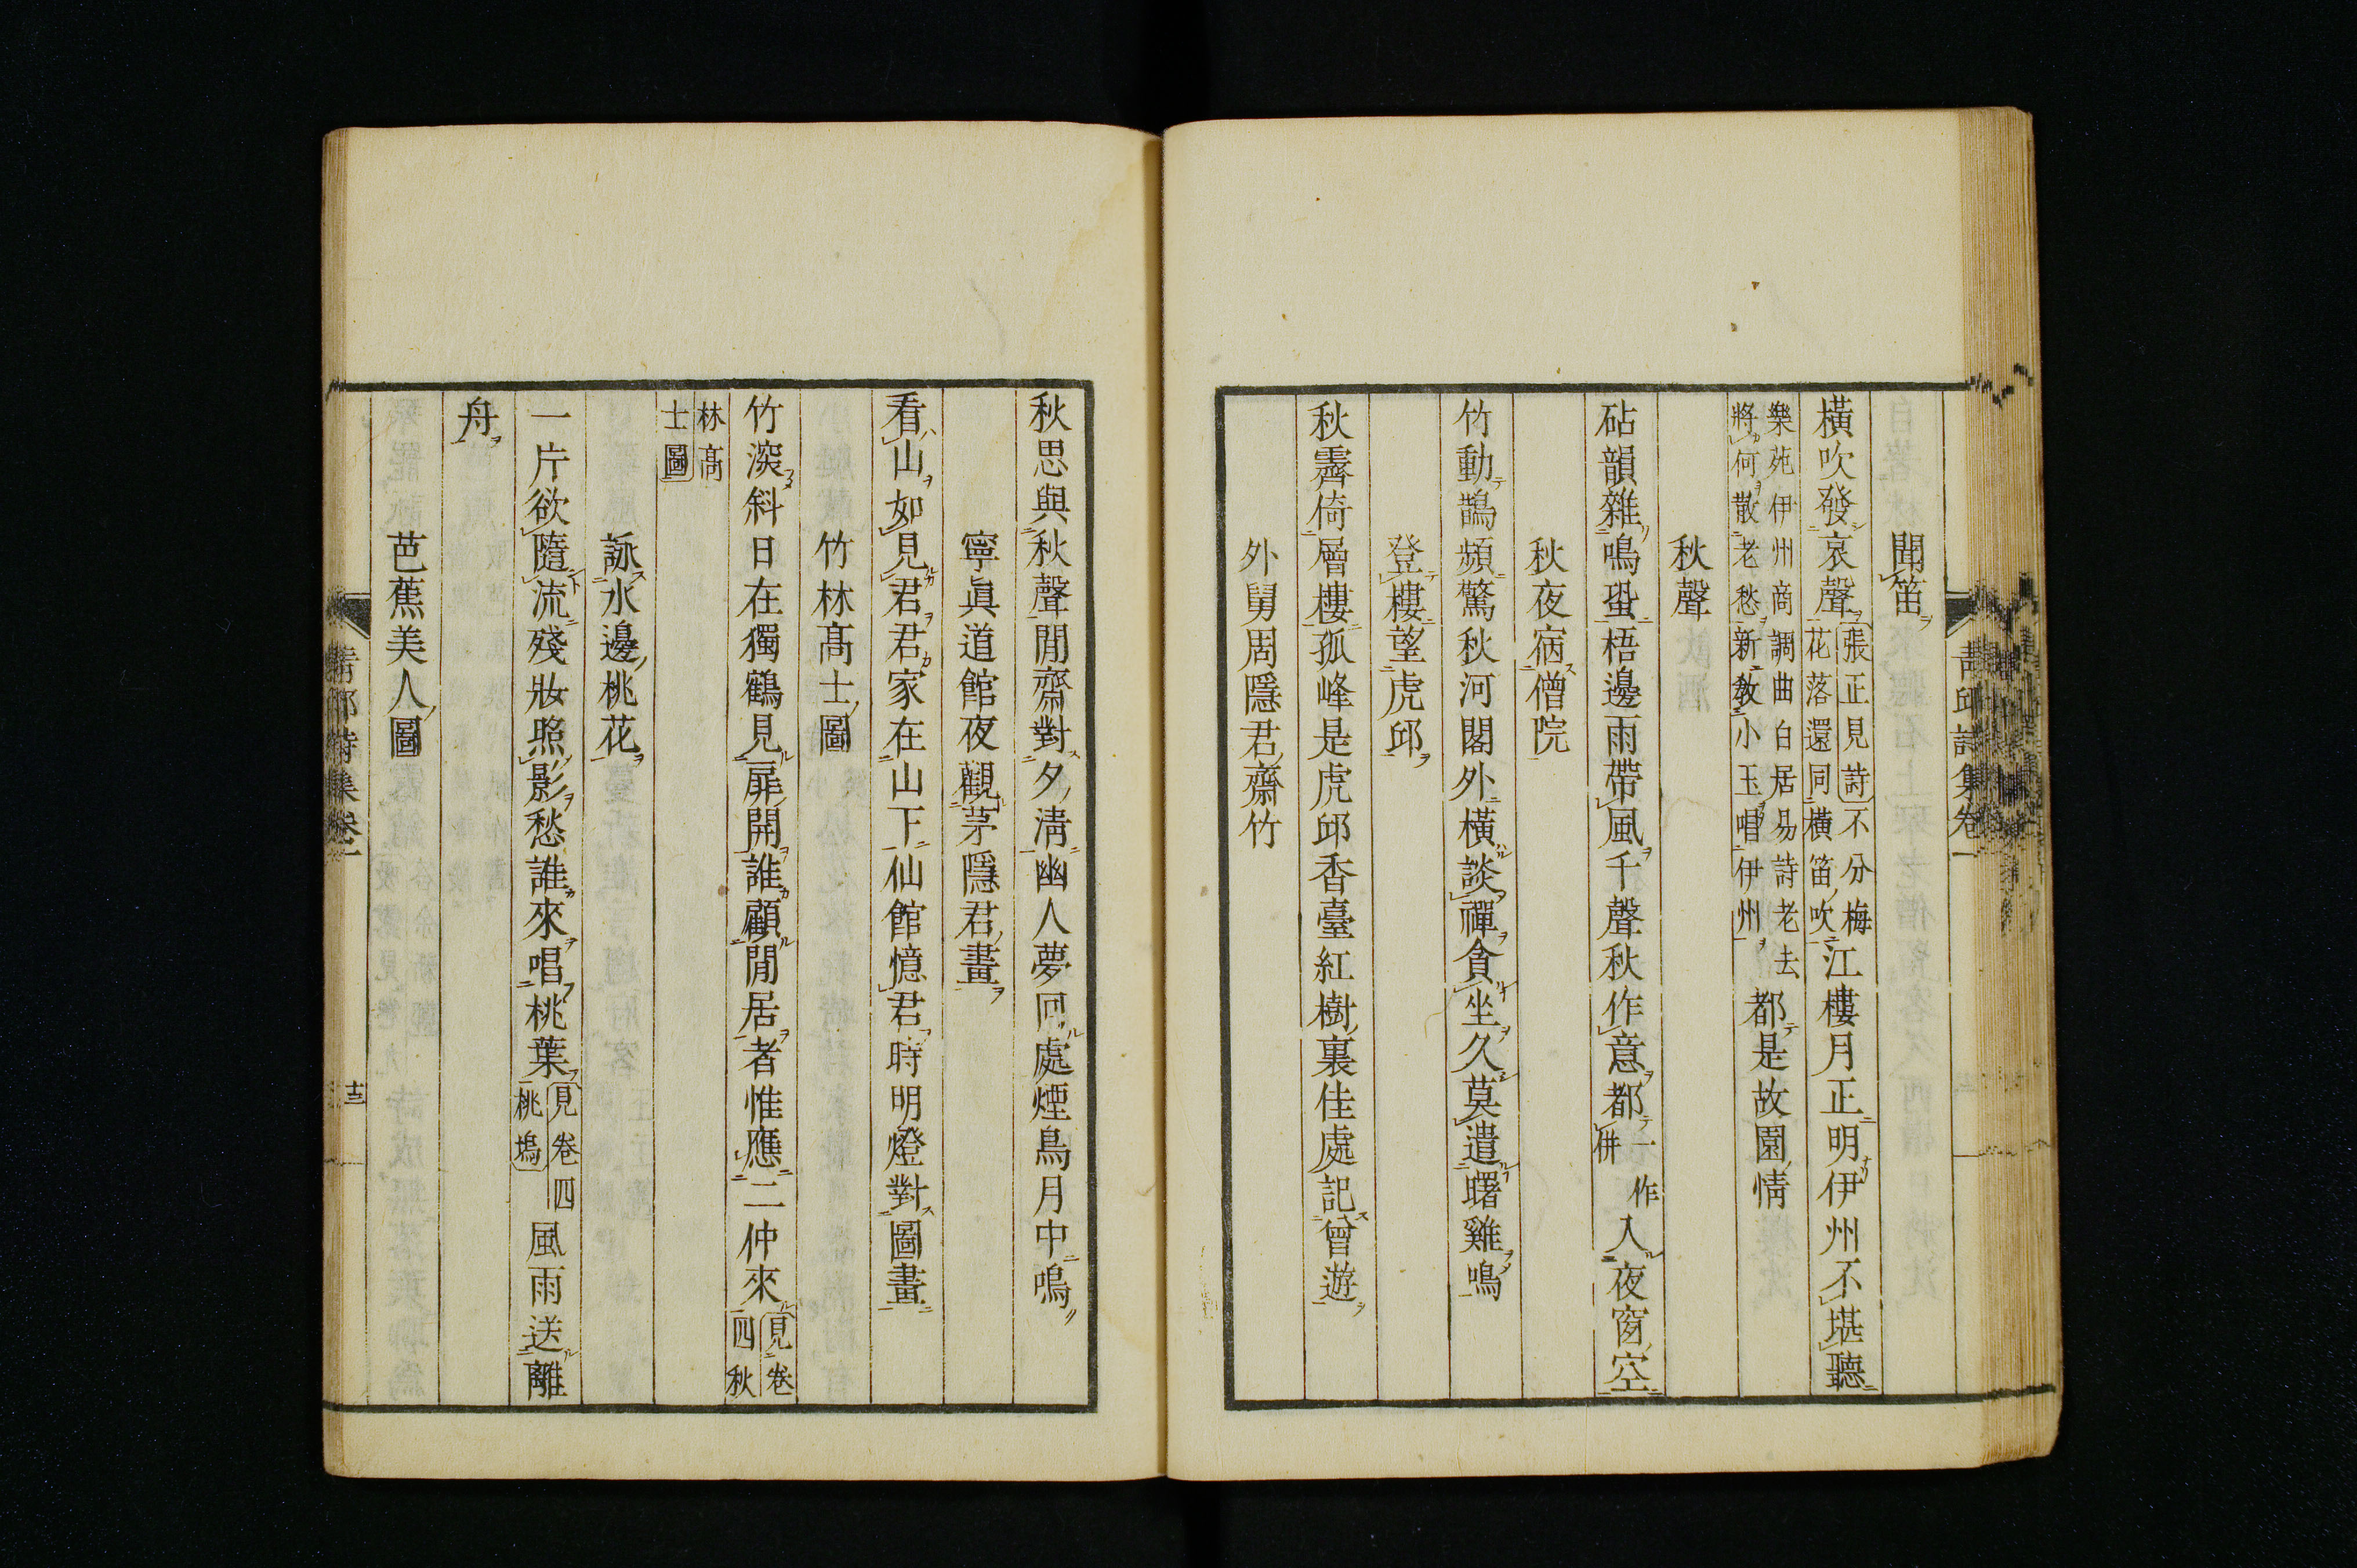 聞笛
橫吹發哀聲張正見詩不分梅花落還同橫笛吹江樓月正明伊州不堪聽
樂苑伊州商調曲白居易詩老去將何散老愁新敎小玉唱伊州都是故園情
秋聲
砧韻雜鳴蛩梧邊雨帶風千聲秋作意都一作併入夜窗空
秋夜宿僧院
竹動鵲頻驚秋河閣外橫談禪貪坐久莫遣曙雞鳴
登樓望虎邱
秋霽倚層樓孤峰是虎邱香臺紅樹裏佳處記曾遊
外舅周隱君齋竹
秋思與秋聲閒齋對夕淸幽人夢囘處煙鳥月中鳴
寧眞道館夜觀茅隱君畫
看山如見君君家在山下仙館憶君時明燈對圖畫
竹林髙士圖
竹深斜日在獨鶴見扉開誰顧閒居者惟應二仲來見卷四秋
林髙士圖
詠水邊桃花
一片欲隨流殘妝照影愁誰來唱桃葉見卷四桃塢風雨送離
舟
芭蕉美人圖
靑邱詩集卷一
十三